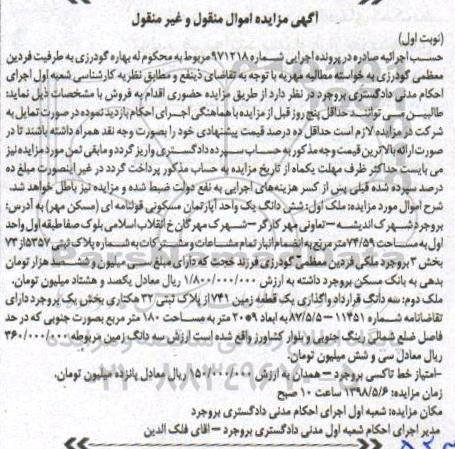 آگهی مزایده اموال منقول و غیر منقول
(نوبت اول)
حسب اجرائیه صادره در پرونده اجرایی شماره ۹۷۱۲۱۸ مربوط به محکوم له بهاره گودرزی به طرفیت فردین
معظمی گودرزی به خواسته مطالبه مهریه با توجه به تقاضای ذینفع و مطابق نظریه کارشناسی شعبه اول اجرای
احکام مدنی دادگستری بروجرد در نظر دارد از طریق مزایده حضوری اقدام به فروش با مشخصات ذیل نماید:
طالبین می توانند حداقل پنج روز قبل از مزایده با هماهنگی اجرای احکام بازدید نموده در صورت تمایل به
شرکت در مزایده لازم است حداقل ده درصد قیمت پیشنهادی خود را بصورت وجه نقد همراه داشته باشند تا در
صورت ارائه بالاترین قیمت وجه مذکور به حساب سپرده دادگستری واریز گردد و مابقی ثمن مورد مزایده نیز
می بایست حداکثر ظرف مهلت یکماه از تاریخ مزایده به حساب مذکور پرداخت گردد در غیر اینصورت مبلغ ده
درصد سپرده شده قبلی پس از کسر هزینه های اجرایی به نفع دولت ضبط شده و مزایده نیز باطل خواهد شد.
شرح اموال مورد مزایده: ملک اول: شش دانگ یک واحد آپارتمان مسکونی قولنامه ای (مسکن مهر) به آدرس:
بروجرد شهرک اندیشه – تعاونی مهر کارگر – شهرک مهرگان خ انقلاب اسلامی بلوک صفا طبقه اول واحد
اول به مساحت ۷۴/۵۹ متر مربع به انضمام انبار تمام مشاعات و مشترکات به شماره پلاک ثبتی ۵۳۵۷ از ۷۳
بخش ۳ بروجرد ملکی فردین معظمی گودرزی فرزند حجت که دارای مبلغ سی میلیون و ششصد هزار تومان
بدهی به بانک مسکن بروجرد داشته به ارزش ۱/۸۰۰/۰۰۰/۰۰۰ ریال معادل یکصد و هشتاد میلیون تومان.
ملک دوم: سه دانگ قرارداد واگذاری یک قطعه زمین ۷۴۱ از پلاک ثبتی ۳۲ هکتاری بخش یک بروجرد دارای
تقاضانامه شماره ۱۱۴۵۱ – ۸۷/۵/۵ به ابعاد ۹*۲۰ متر به مساحت ۱۸۰ متر مربع بصورت جنوبی که در حد
فاصل ضلع شمالی رینگ جنوبی و بلوار کشاورز واقع شده است ارزش سه دانگ زمین مربوطه ۳۶۰/۰۰۰/۰۰۰
ریال معادل سی و شش میلیون تومان.
-امتیاز خط تاکسی بروجرد – همدان به ارزش ۱۵۰/۰۰۰/۰۰۰ ریال معادل پانزده میلیون تومان.
زمان مزایده: ۱۳۹۸/۵/۶ ساعت ۱۰ صبح
مکان مزایده: شعبه اول اجرای احکام مدنی دادگستری بروجرد
مدیر اجرای احکام شعبه اول مدنی دادگستری بروجرد – آقای فلک الدین